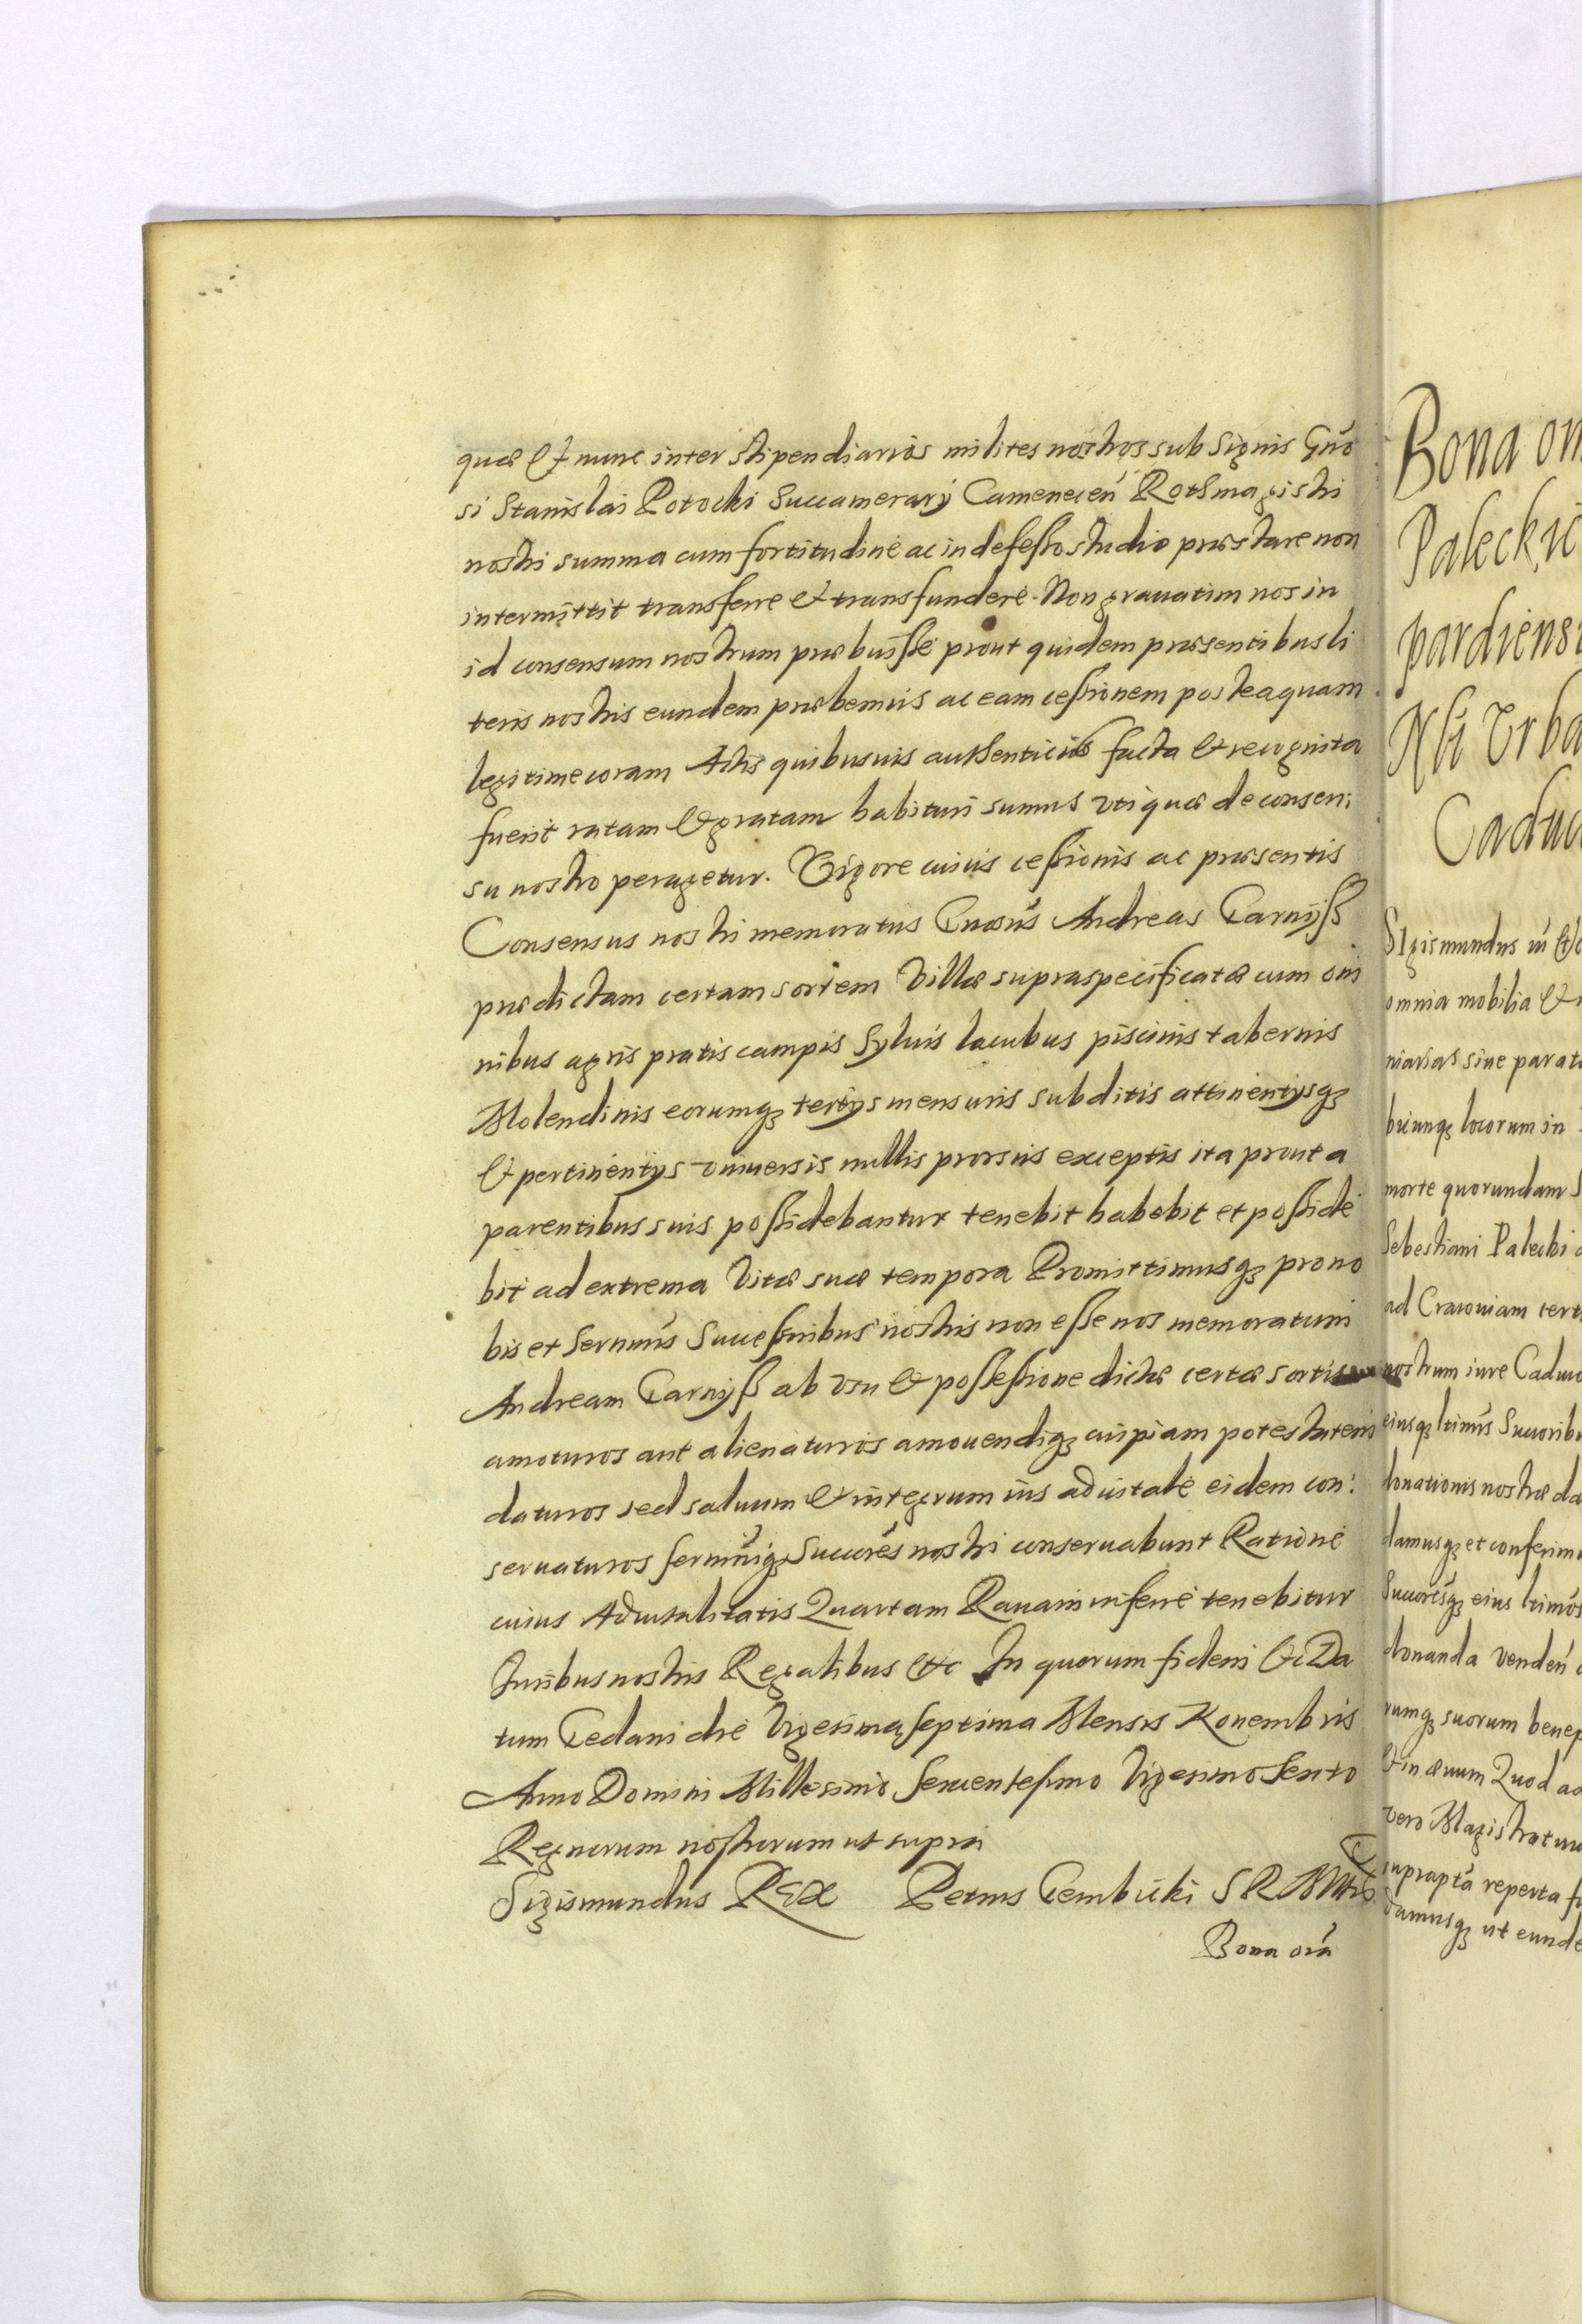 quæ Et nunc inter stipendiarios milites nostros sub signis Gńo
si Stanislai Potocki Succamerarÿ Camenecen̄ Rothmagistri
nostri summa cum fortitudine ac indefesso studio præstare non
intermittit transferre et transfundere. Non gravatim nos in
id consensum nostrum præbuisse prout quidem præsentibus li
teris nostris eundem præbemus ac eam cessionem posteaquam
legitime coram Actis quibusuis authenticis facta et recognita
fuerit ratam et gratam habituri sumus vti quæ de consen:
su nostro peragetur. Vigore cuius cessionis ac præsentis
Consensus nostri memoratus Gnosus Andreas Garnÿß
prædictam certam sortem Villæ supraspecificatæ cum om
nibus agris pratis campis syluis lacubus piscinis tabernis
Molendinis eorumq; tertÿs mensuris subditis attinentÿsq;
et pertinentÿs vniuersis nullis prorsus exceptis ita prout a
parentibus suis possidebantur tenebit habebit et posside
bit ad extrema Vitæ suæ tempora Promittimusq; pro no
bis et sernmis Successoribus nostris non esse nos memoratum
Andream Garnÿß ab vsu et possessione dictæ certæ sortis
amoturos aut alienaturos amouendiq; cuipiam potestatem
daturos sed saluum et integrum ius aduitale eidem con:
seruaturos sernmiq; Succores nostri conseruabunt Ratione
cuius Aduitalitatis Quartam Rauam inferre tenebitur
Iuribus nostris Regalibus etc In quorum fidem etc Da
tum Gedani die Vigesima septima Mensis Nouembris
Anno Domini Millesimo sexcentesimo Vigesimo sexto
Regnorum nostrorum ut supra
Sigismundus REX Petrus Gembicki S R M
Bona om̄a
Bona om
Paleckic
pardiensi
Nli Vrba
Caduc
Sigismundus
omnia mobilia et
niarias siue parat
biumq; locorum in
morte quorundam S
Sebestiani Palecki
ad Cracoviam cert
nostrum iure Caduc
eiusq; ltimis Succorib
donationis nostræ da
damusq; et conferim
Succoresq; eius ltimos
donanda venden̄
rumq; suorum benep
et in æuum Quod ad
vero Magistratuu
suprapta reperta fu
damusq; ut eunde